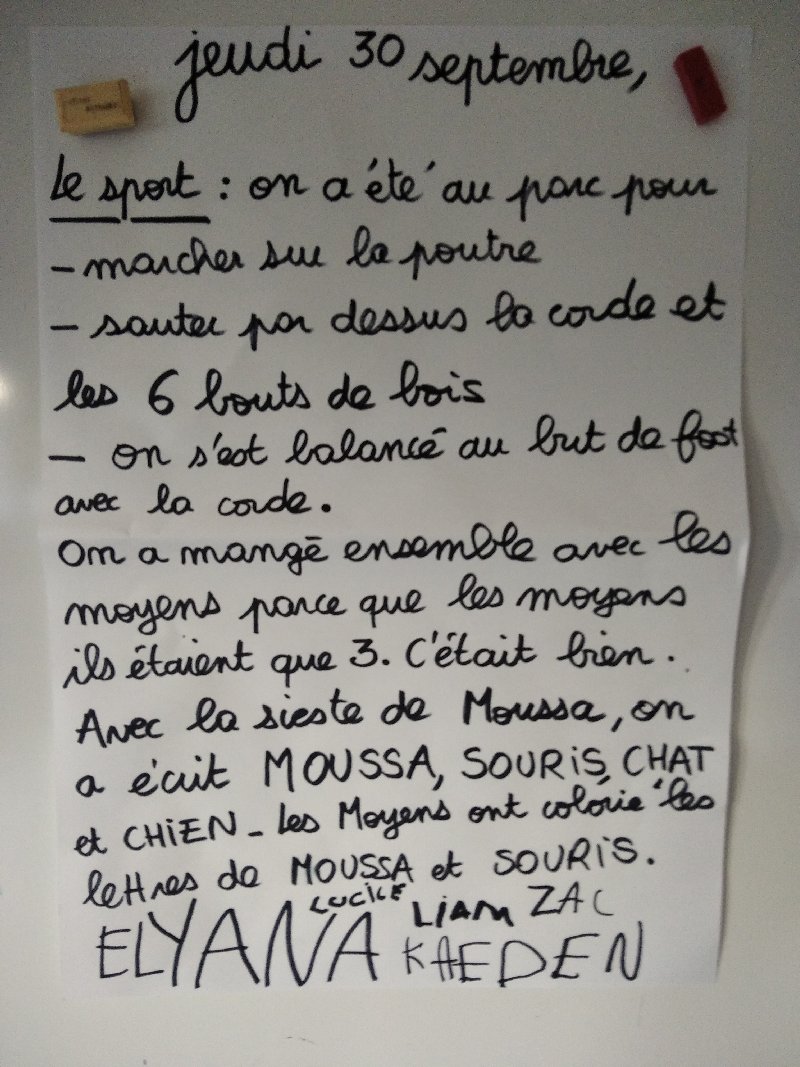 jeudi 30 septembre,
Le sport : on a été au parc pour
- marcher sur la poutre
- sauter par dessus la corde et
les 6 bouts de bois
- on s'est balancé au but de foot
avec la corde.
On a mangé ensemble avec les
moyens parce que les moyens
ils étaient que 3. C'était bien.
Avec la sieste de Moussa, on
a écrit MOUSSA, SOURIS, CHAT
et CHIEN - Les Moyens ont colorié les
lettres de MOUSSA et SOURIS.
LUCILE LIAM ZAC
ELYANA KAEDEN